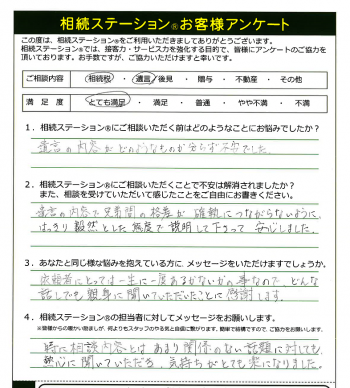 相続ステーション®お客様アンケート
この度は、相続ステーション®をご利用いただきましてありがとうございます。
相続ステーション®では、接客力・サービス力を強化する目的で、皆様にアンケートのご協力を
頂いております。お手数ですが、ご協力いただけますと幸いです。
ご相談内容 相続税 ・ 遺言/後見 ・ 贈与 ・ 不動産 ・ その他
満足度 とても満足 ・ 満足 ・ 普通 ・ やや不満 ・ 不満
1．相続ステーション®にご相談いただく前はどのようなことにお悩みでしたか？
遺言の内容がどのようなものか分らず不安でした。
2．相続ステーション®にご相談いただくことで不安は解消されましたか？
また、相談を受けていただいて感じたことをご自由にお書きください。
遺言の内容で兄弟間の格差が確執につながらないように、
はっきり毅然とした態度で説明して下さって安心しました。
3．あなたと同じ様な悩みを抱えている方に、メッセージをいただけますでしょうか。
依頼者にとっては一生に一度あるかないかの事なので、どんな
話しでも親身に聞いていただいたことに感謝します。
4．相続ステーション®の担当者に対してメッセージをお願いします。
※皆様からの暖かい励ましが、何よりもスタッフのやる気と自信に繋がります。簡単で結構ですので、ご協力をお願いします。
時に相談内容とはあまり関係のない話題に対しても
熱心に聞いていただき、気持ちがとても楽になりました。